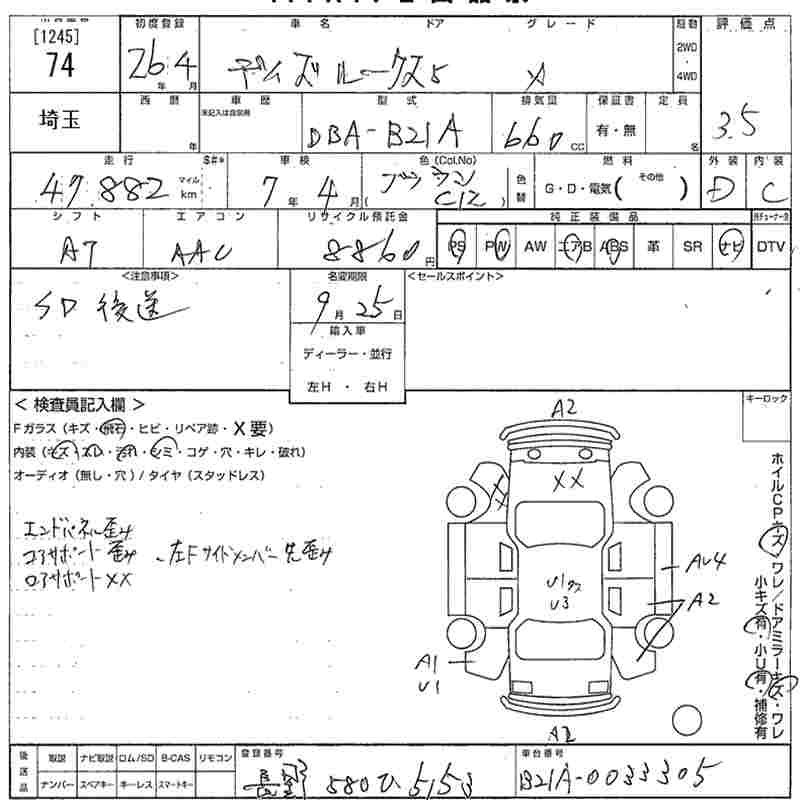 [1245]
74
初度登録
車名
ドア
グレード
駆動
評価点
26年4月
デイズルークス 5
X
2WD
・
4WD
3.5
埼玉
西暦
年
車歴
未記入は自家用
型式
DBA-B21A
排気量
660 CC
保証書
有・無
定員
名
走行
47.882
マイル
km
S#*
車検
7年4月
色(Col.No)
ブラウン
色替
燃料
G・D・電気( その他 )
外装
D
内装
C
シフト
AT
エアコン
AAC
リサイクル預託金
8860円
純正装備品
PS PW AW エアB ABS 革 SR ナビ
別チューナー有
DTV
<注意事項>
SD 後送
名変期限
9月25日
輸入車
ディーラー・並行
左H ・ 右H
<セールスポイント>
< 検査員記入欄 >
Fガラス (キズ・飛石・ヒビ・リペア跡・X要)
内装 (キズ・スレ・汚れ・シミ・コゲ・穴・キレ・破れ)
オーディオ (無し・穴) / タイヤ (スタッドレス)
エンドパネル歪み
コアサポート歪み、左Fサイドメンバー先歪み
ロアサポートXX
キーロック
A2
XX
XX
AU4
A2
U3
A1
U1
A2
ホイルCPキズ・ワレ/ドアミラーキズ・ワレ
小キズ有・小U有・補修有
後送品
取説 ナビ取説 ロム/SD B-CAS リモコン
ナンバー スペアキー キーレス スマートキー
登録番号
長野 580 ひ 5153
車台番号
B21A-0033305